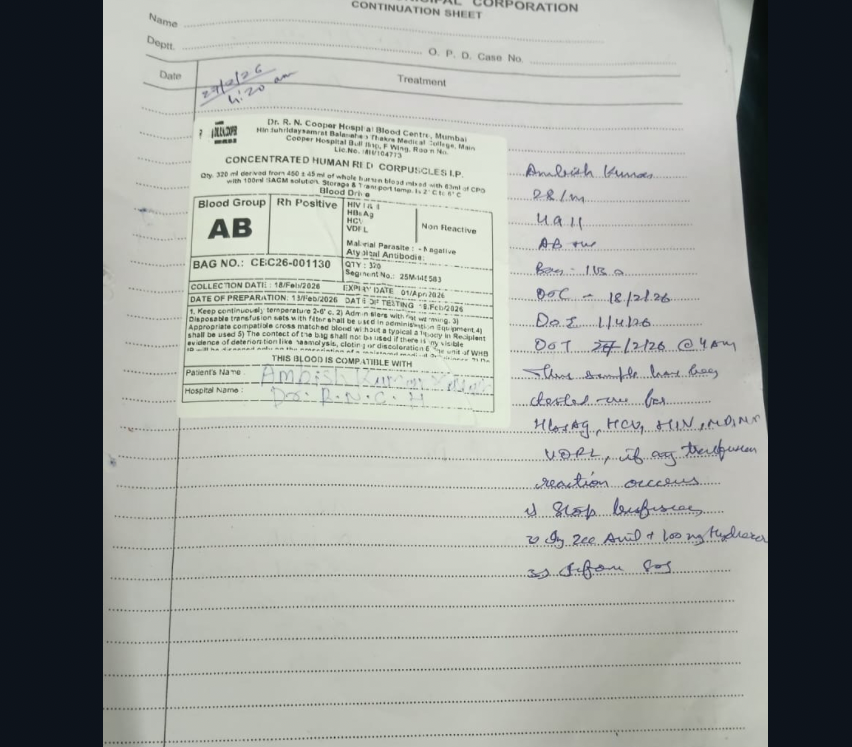 CORPORATION
CONTINUATION SHEET
Name
Deptt.
O. P. D. Case No.
Date
Treatment
4:20 am
Dr. R. N. Cooper Hospital Blood Centre, Mumbai
Medical College, Main
Cooper Hospital F Wing,
CONCENTRATED HUMAN RED CORPUSCLES I.P.
Qty. 320 ml derived from 450 ± 45ml of whole human blood mixed with 63ml of CPD
with 100ml SAGM solution. Storage & Transport temp. 2° C to 6° C
Blood Drive
Blood Group
Rh Positive
AB
HIV I & II
HBsAg
HCV
VDRL
Non Reactive
Malarial Parasite : - Negative
Atypical Antibodie:
BAG NO.: CBC26-001130
QTY : 320
Segment No.:
COLLECTION DATE : 18/Feb/2026
EXPIRY DATE 01/Apr/2026
DATE OF PREPARATION: /Feb/2026 DATE OF TESTING /Feb/2026
1. Keep continuously temperature 2-6° c. 2)
Disposable transfusion sets with filter shall be used in administration Equipment.4)
Appropriate compatible cross matched blood without a typical antibody in Recipient
shall be used 5) The content of the bag shall not be used if there is any visible
evidence of deterioration like haemolysis, clotting or discoloration
THIS BLOOD IS COMPATIBLE WITH
Patient's Name : Ambish Kumar
Hospital Name : Dr. R.N.C.H
Ambish Kumar
28/M
AB +ve
Bag -
DOC - 18/2/26
DOE 1/4/26
DOT /2/26 @ 4 am
This sample has been
tested -ve for
HbsAg, HCV, HIV,
VDRL, if any transfusion
reaction occurs
1) Stop
2) Inj 2cc Avil + 100 mg
3) Inform